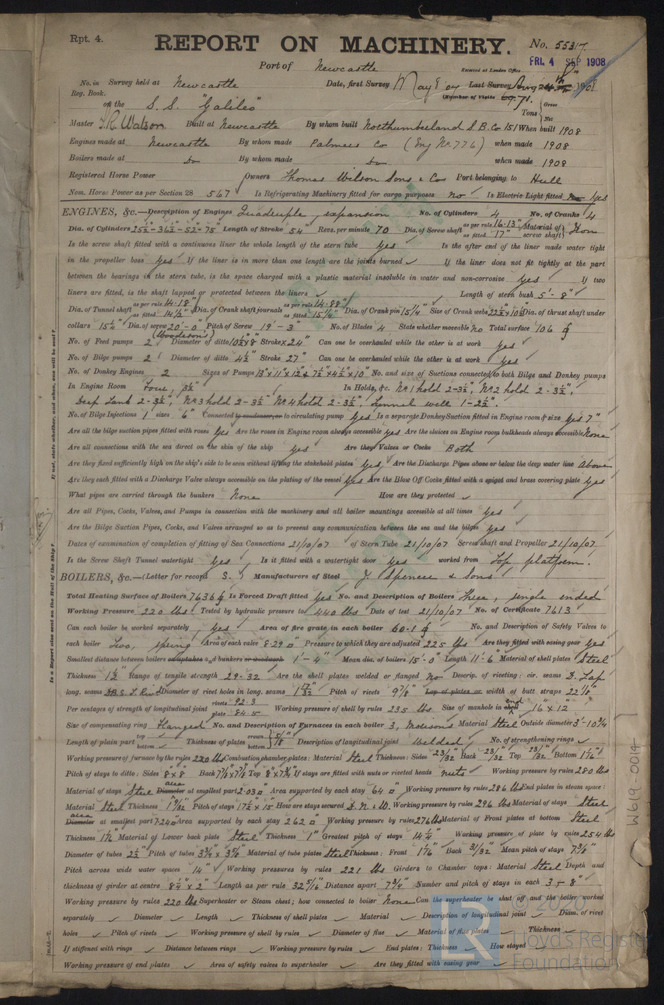 Rpt. 4.
REPORT ON MACHINERY.
No. 55317.
Port of Newcastle
Received at London Office
FRI. 4 SEP 1908
No. in Survey held at Newcastle Date, first Survey May 8 07 Last Survey Aug 1908
Reg. Book.
(Number of Visits 71.
on the S. S. "Galileo"
Tons { Gross Net
Master J.R. Watson Built at Newcastle By whom built Northumberland S.B. Co 151 When built 1908
Engines made at Newcastle By whom made Palmers Co (Eng No 776) when made 1908
Boilers made at Do By whom made Do when made 1908
Registered Horse Power Owners Thomas Wilson Sons & Co Port belonging to Hull
Nom. Horse Power as per Section 28 567 Is Refrigerating Machinery fitted for cargo purposes No Is Electric Light fitted yes
ENGINES, &c.—Description of Engines Quadruple expansion No. of Cylinders 4 No. of Cranks 4
Dia. of Cylinders 25½-36½-52-75" Length of Stroke 54" Revs. per minute 70 Dia. of Screw shaft as per rule 16.13" as fitted 17" Material of screw shaft Iron
Is the screw shaft fitted with a continuous liner the whole length of the stern tube yes Is the after end of the liner made water tight
in the propeller boss yes If the liner is in more than one length are the joints burned ✓ If the liner does not fit tightly at the part
between the bearings in the stern tube, is the space charged with a plastic material insoluble in water and non-corrosive yes If two
liners are fitted, is the shaft lapped or protected between the liners ✓ Length of stern bush 5'-8"
Dia. of Tunnel shaft as per rule 14.18" as fitted 14½" Dia. of Crank shaft journals as per rule 14.88" as fitted Dia. of Crank pin 15¼" Size of Crank webs Dia. of thrust shaft under
collars 15¼" Dia. of screw 20'-0" Pitch of Screw 19'-3" No. of Blades 4 State whether moveable No Total surface 106
No. of Feed pumps 2 (Woodeson's) Diameter of ditto Stroke 24" Can one be overhauled while the other is at work yes
No. of Bilge pumps 2 Diameter of ditto 4½" Stroke 27" Can one be overhauled while the other is at work yes
No. of Donkey Engines 2 Sizes of Pumps No. and size of Suctions connected to both Bilge and Donkey pumps
In Engine Room Four, 3½" In Holds, &c. No 1 hold 2-3½", No 2 hold 2-3½",
Deep Tank 2-3½", No 3 hold 2-3½", No 4 hold 2-3½", Tunnel well 1-2½".
No. of Bilge Injections 1 sizes 6" Connected to circulating pump yes Is a separate Donkey Suction fitted in Engine room & size yes 7"
Are all the bilge suction pipes fitted with roses yes Are the roses in Engine room always accessible yes Are the sluices on Engine room bulkheads always accessible None
Are all connections with the sea direct on the skin of the ship yes Are they Valves or Cocks Both
Are they fixed sufficiently high on the ship's side to be seen without lifting the stokehold plates yes Are the Discharge Pipes above or below the deep water line Above
Are they each fitted with a Discharge Valve always accessible on the plating of the vessel yes Are the Blow Off Cocks fitted with a spigot and brass covering plate yes
What pipes are carried through the bunkers None How are they protected ✓
Are all Pipes, Cocks, Valves, and Pumps in connection with the machinery and all boiler mountings accessible at all times yes
Are the Bilge Suction Pipes, Cocks, and Valves arranged so as to prevent any communication between the sea and the bilges yes
Dates of examination of completion of fitting of Sea Connections 21/10/07 of Stern Tube 21/10/07 Screw shaft and Propeller 21/10/07
Is the Screw Shaft Tunnel watertight yes Is it fitted with a watertight door yes worked from Top platform.
BOILERS, &c.—(Letter for record S.) Manufacturers of Steel J. Spencer & Sons
Total Heating Surface of Boilers 7636 Is Forced Draft fitted yes No. and Description of Boilers Three, single ended
Working Pressure 220 lbs Tested by hydraulic pressure to 440 lbs Date of test 21/10/07 No. of Certificate 7613
Can each boiler be worked separately yes Area of fire grate in each boiler 60.1 No. and Description of Safety Valves to
each boiler Two, spring Area of each valve 8.290" Pressure to which they are adjusted 225 lbs Are they fitted with easing gear yes
Smallest distance between boilers or uptakes and bunkers or woodwork 1'-4" Mean dia. of boilers 15'-0" Length 11'-6" Material of shell plates Steel
Thickness Range of tensile strength 29-32 Are the shell plates welded or flanged No Descrip. of riveting: cir. seams D. Lap
long. seams Diameter of rivet holes in long. seams Pitch of rivets 9⅛" Lap of plates or width of butt straps 22⅛"
Per centages of strength of longitudinal joint rivets 92.3 plate 84.5 Working pressure of shell by rules 235 lbs Size of manhole in shell 16 x 12
Size of compensating ring Flanged No. and Description of Furnaces in each boiler 3, Morisons Material Steel Outside diameter 3'-10¾"
Length of plain part top bottom Thickness of plates crown bottom Description of longitudinal joint Welded No. of strengthening rings ✓
Working pressure of furnace by the rules 220 lbs Combustion chamber plates: Material Steel Thickness: Sides 23/32 Back 23/32 Top 23/32 Bottom
Pitch of stays to ditto: Sides 8x8 Back Top If stays are fitted with nuts or riveted heads nuts Working pressure by rules 280 lbs
Material of stays Steel area at smallest part 2.030 Area supported by each stay 64 Working pressure by rules 286 lbs End plates in steam space:
Material Steel Thickness Pitch of stays 17½ x 15 How are stays secured D.N.&W. Working pressure by rules 296 lbs Material of stays Steel
area at smallest part 7.240 Area supported by each stay 262 Working pressure by rules 276 lbs Material of Front plates at bottom Steel
Thickness Material of Lower back plate Steel Thickness 1" Greatest pitch of stays 14¼" Working pressure of plate by rules 254 lbs
Diameter of tubes 2½" Pitch of tubes 3¾ x 3¾ Material of tube plates Steel Thickness: Front Back 31/32 Mean pitch of stays 7¾"
Pitch across wide water spaces 14" Working pressures by rules 221 lbs Girders to Chamber tops: Material Steel Depth and
thickness of girder at centre 8¼ x 2" Length as per rule Distance apart 7¾" Number and pitch of stays in each 3-8"
Working pressure by rules 220 lbs Superheater or Steam chest; how connected to boiler None Can the superheater be shut off and the boiler worked
separately ✓ Diameter ✓ Length ✓ Thickness of shell plates ✓ Material ✓ Description of longitudinal joint ✓ Diam. of rivet
holes ✓ Pitch of rivets ✓ Working pressure of shell by rules ✓ Diameter of flue ✓ Material of flue plates ✓ Thickness ✓
If stiffened with rings ✓ Distance between rings ✓ Working pressure by rules ✓ End plates: Thickness ✓ How stayed
Working pressure of end plates ✓ Area of safety valves to superheater ✓ Are they fitted with easing gear ✓
W619-0014
© 2020
Lloyd's Register
Foundation